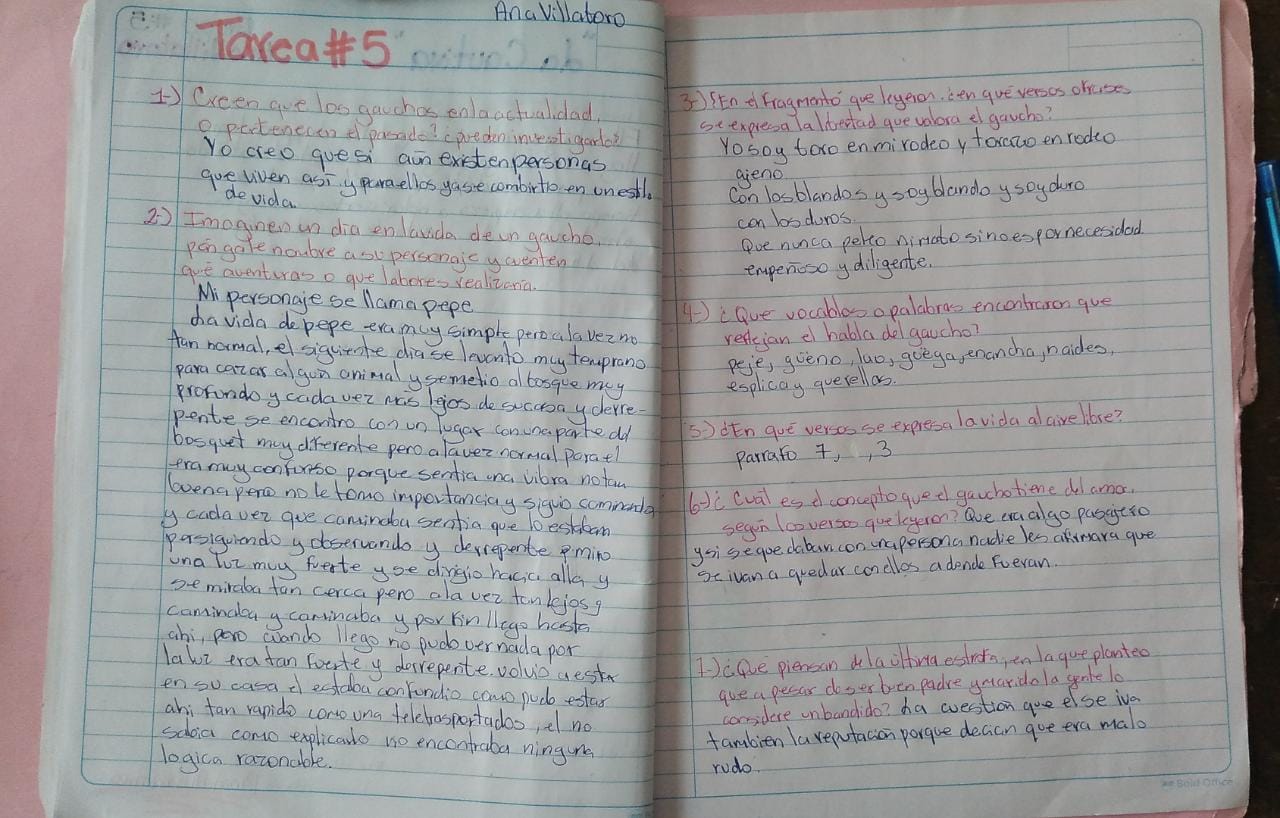 Ana Villatoro
Tarea #5
1-) Creen que los gauchos en la actualidad,
o pertenecen el pasado? ¿pueden investigarlo?
Yo creo que si aún existen personas
que viven así y para ellos ya se combirtio en un estilo
de vida.
2-) Imaginen un dia en la vida de un gaucho,
pongale nombre a su personaje y cuenten
qué aventuras o que labores realizaria.
Mi personaje se llama pepe
La vida de pepe era muy simple pero a la vez no
tan normal, el siguiente dia se levanto muy temprano
para cazar algun animal y se metio al bosque muy
profundo y cada vez mas lejos de su casa y derre-
pente se encontro con un lugar con una parte del
bosquet muy diferente pero a la vez normal para el
era muy confunso porque sentia una vibra no tan
buena pero no le tomo importancia y siguio caminando
y cada vez que caminaba sentia que lo estaban
persiguiendo y observando y derrepente miro
una luz muy fuerte y se dirigio hacia alla y
se miraba tan cerca pero a la vez tan lejos y
caminaba y caminaba y por fin llego hasta
ahi, pero cuando llego no pudo ver nada por
la luz era tan fuerte y derrepente volvio a estar
en su casa el estaba confundio como pudo estar
ahi tan rapido como una teletrasportados, el no
sabia como explicarlo no encontraba ninguna
logica razonable.
3-) En el fragmento que leyeron, ¿en qué versos
se expresa la libertad que valora el gaucho?
Yo soy toro en mi rodeo y torazo en rodeo
ajeno
Con los blandos y soy blando y soy duro
con los duros.
Que nunca peleo ni mato sino es por necesidad
empeñoso y diligente.
4-) ¿Que vocablos o palabras encontraron que
reflejan el habla del gaucho?
peje, güeno, lao, güega, enancha, naides,
esplica y querellas.
5-) ¿En qué versos se expresa la vida al aire libre?
parrafo 7, , 3
6-) ¿Cuál es el concepto que el gaucho tiene del amor,
según los versos que leyeron? Que era algo pasajero
y si se quedaban con una persona nadie les afirmara que
se ivan a quedar con ellos a donde fueran.
7-) ¿Qué piensan de la última estrofa, en la que planteo
que a pesar de ser buen padre y marido la gente lo
considere un bandido? La cuestion que el se iva
tambien la reputación porque decian que era malo
rudo.
Bold Office